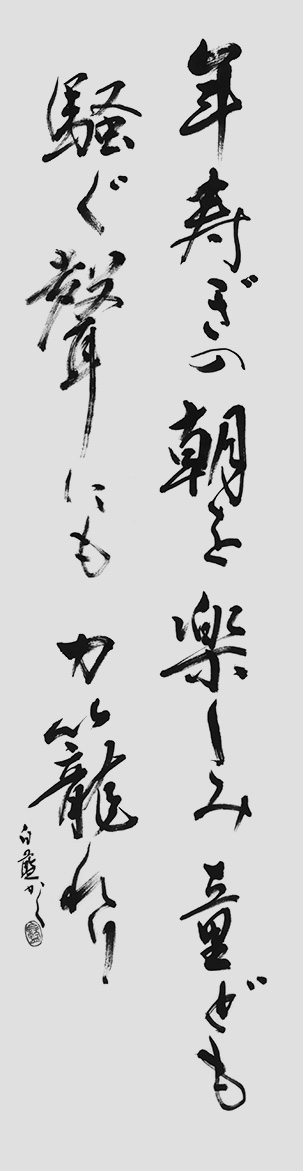 年寿ぎの朝を楽しみ童ども
騒ぐ聲にも力籠れり
かく